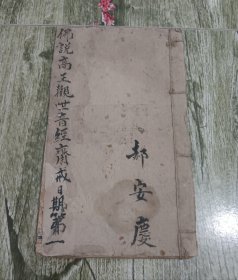 佛説高王觀世音經齋戒日期第一
郝安慶